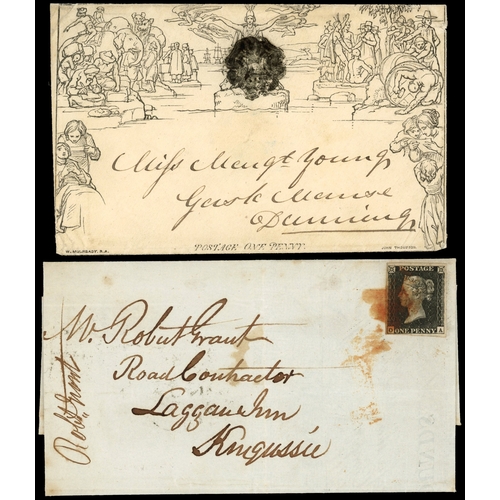 Miss Margt Young
Gask Manse
Dunning
POSTAGE ONE PENNY.
W. MULREADY, R.A.
JOHN THOMPSON
POSTAGE
ONE PENNY
A
Mr. Robert Grant
Road Contractor
Laggan Inn
Kingussie
Robt Grant